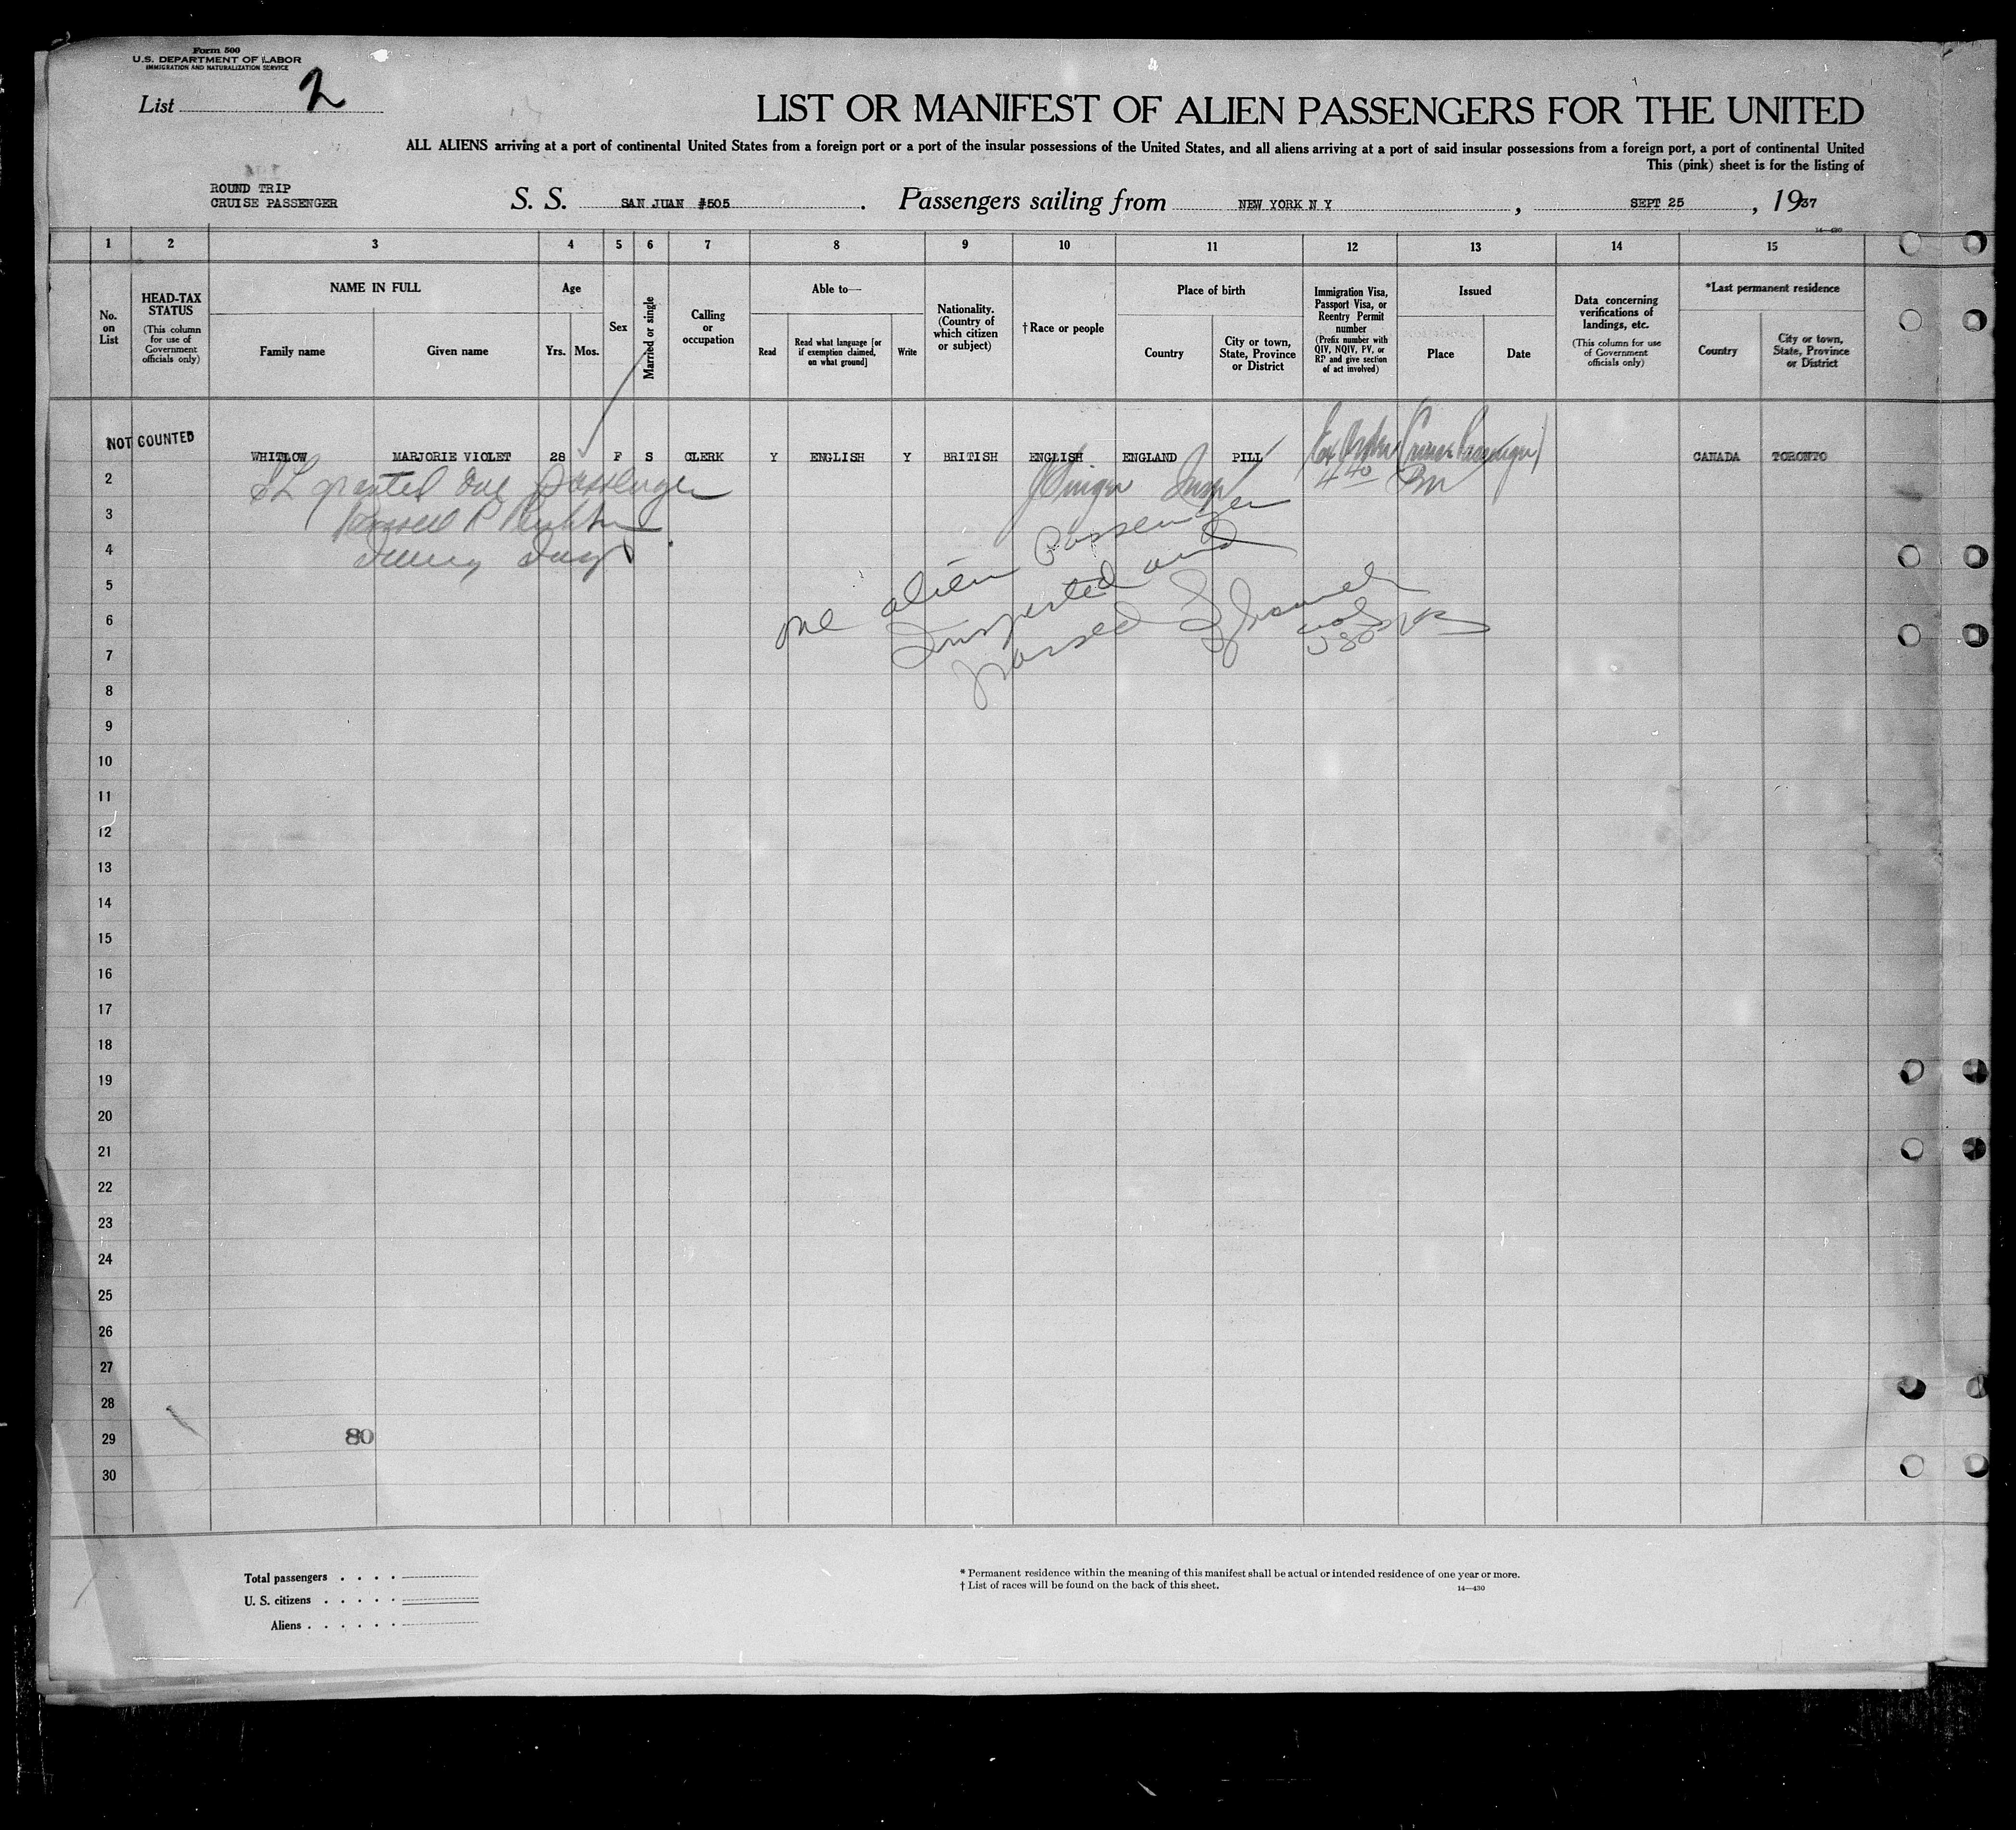 Form 500
U.S. DEPARTMENT OF LABOR
IMMIGRATION AND NATURALIZATION SERVICE
List 2
LIST OR MANIFEST OF ALIEN PASSENGERS FOR THE UNITED
ALL ALIENS arriving at a port of continental United States from a foreign port or a port of the insular possessions of the United States, and all aliens arriving at a port of said insular possessions from a foreign port, a port of continental United
This (pink) sheet is for the listing of
ROUND TRIP
CRUISE PASSENGER
S. S. SAN JUAN #505. Passengers sailing from NEW YORK N Y, SEPT 25, 1937
14—430
1 2 3 4 5 6 7 8 9 10 11 12 13 14 15
No. on List
HEAD-TAX STATUS
(This column for use of Government officials only)
NAME IN FULL
Family name Given name
Age
Yrs. Mos.
Sex
Married or single
Calling or occupation
Able to—
Read
Read what language [or if exemption claimed, on what ground]
Write
Nationality. (Country of which citizen or subject)
†Race or people
Place of birth
Country
City or town, State, Province or District
Immigration Visa, Passport Visa, or Reentry Permit number
(Prefix number with QIV, NQIV, PV, or RP and give section of act involved)
Issued
Place Date
Data concerning verifications of landings, etc.
(This column for use of Government officials only)
*Last permanent residence
Country
City or town, State, Province or District
NOT COUNTED
WHITLOW MARJORIE VIOLET 28 F S CLERK Y ENGLISH Y BRITISH ENGLISH ENGLAND PILL Ex Order (Cruise Passenger) CANADA TORONTO
440
2 SL granted one passenger
Insp
3
4
one alien Passenger
Inspected and
passed
5
6
7
8
9
10
11
12
13
14
15
16
17
18
19
20
21
22
23
24
25
26
27
28
29 80
30
Total passengers
U. S. citizens
Aliens
* Permanent residence within the meaning of this manifest shall be actual or intended residence of one year or more.
† List of races will be found on the back of this sheet.
14—430